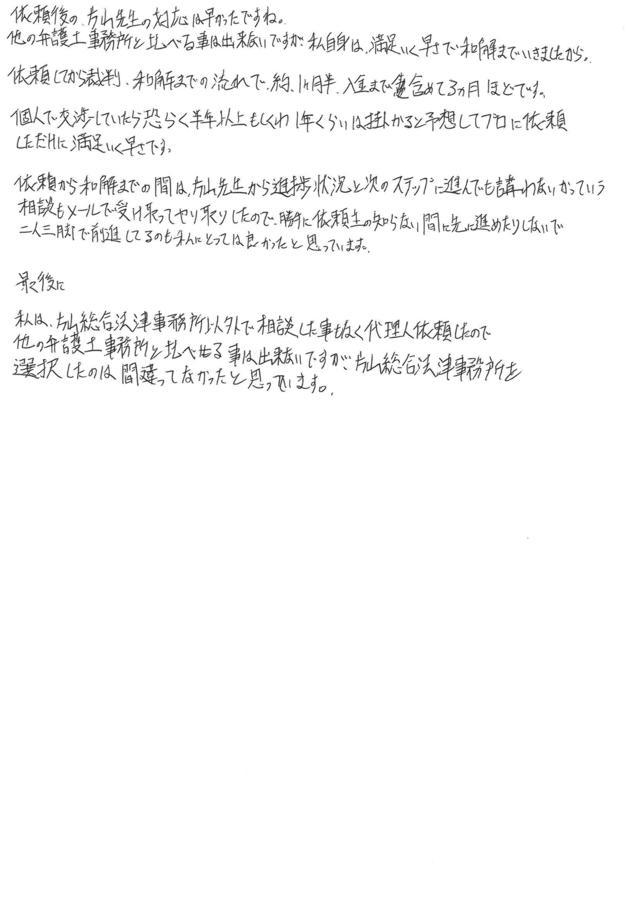 依頼後の、片山先生の対応は早かったですね。
他の弁護士事務所と比べる事は出来ないですが私自身は、満足いく早さで和解までいきましたから。
依頼してから裁判、和解までの流れで、約、1ヶ月半、入金まで含めて3ヵ月ほどです。
個人で交渉していたら恐らく半年以上もしくわ1年くらいは掛かると予想してプロに依頼
しただけに満足いく早さです。
依頼から和解までの間は、片山先生から進捗状況と次のステップに進んでも講わないかっていう
相談もメールで受け取ってやり取りしたので、勝手に依頼主の知らない間に先に進めたりしないで
二人三脚で前進してるのも私にとっては良かったと思っています。
最後に
私は、片山総合法津事務所以外で相談した事もなく代理人依頼したので
他の弁護士事務所と比べせる事は出来ないですが、片山総合法津事務所を
選択したのは間違ってなかったと思っています。